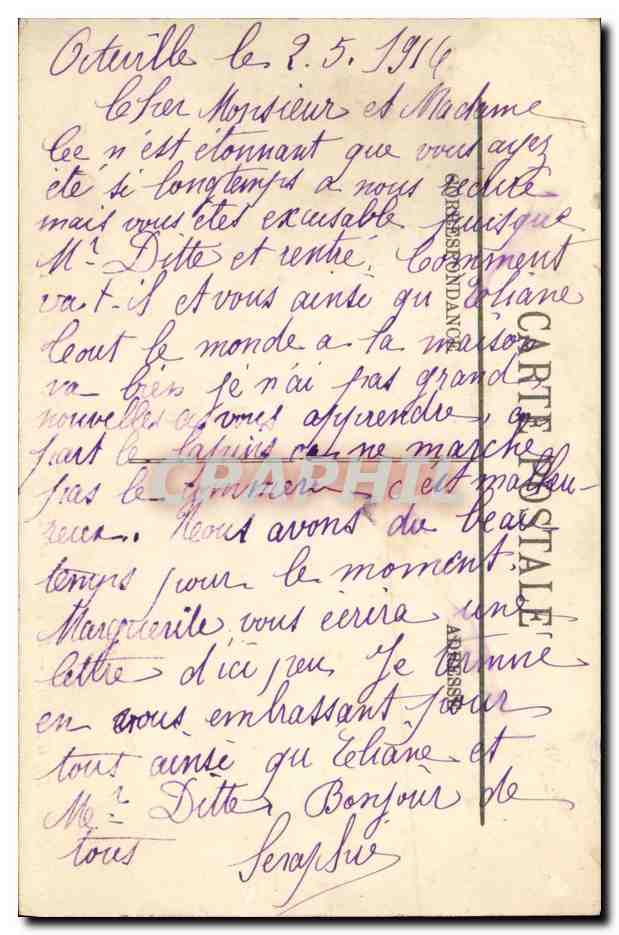 Octeville le 2.5.1916
Cher Monsieur et Madame
Ce n'est étonnant que vous ayez
été si longtemps a nous écrire
mais vous êtes excusable puisque
Mr Ditte et rentré, Comment
va t-il et vous ainsi qu Eliane
tout le monde a la maison
va bien je n'ai pas grand
nouvelles a vous apprendre, a
part le lapins ça ne marche
pas le commerce, c'est malheu-
reux. Nous avons du beau
temps pour le moment.
Marguerite vous écrira une
lettre d'ici peu Je termine
en vous embrassant pour
tous ainsi qu Eliane et
Mr Ditte, Bonjour de
tous Seraphie
CARTE POSTALE
CORRESPONDANCE
ADRESSE
CPRAPHIL